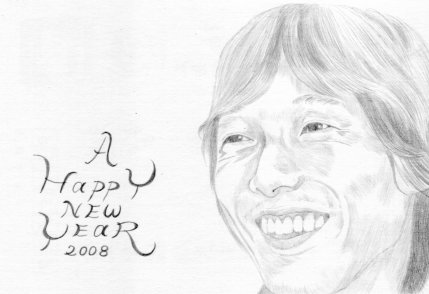 A
HappY
NEW
YEaR
2008